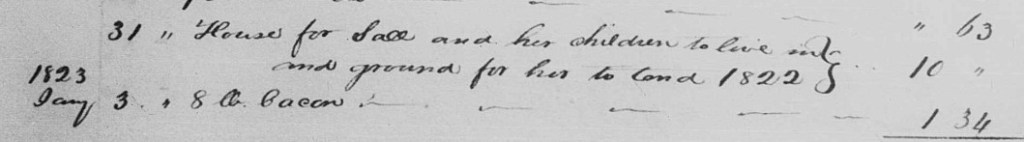 31 " House for Sall and her children to live in } " 63
and ground for her to tend 1822 } 10 "
1823
Jany 3 " 8 lb. bacon 1 34